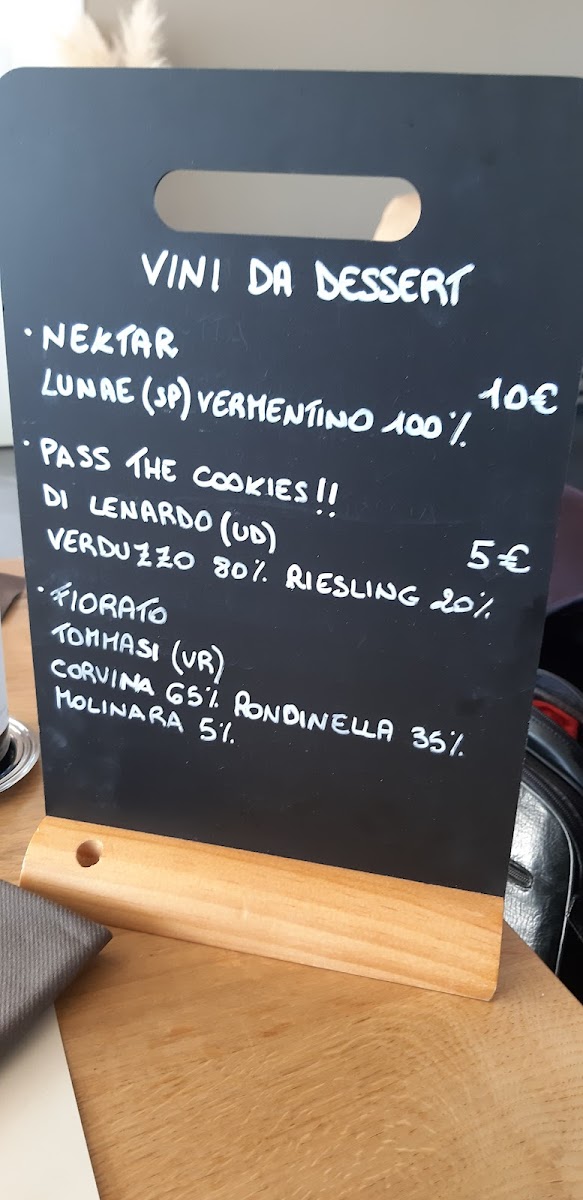 VINI DA DESSERT
· NEKTAR
LUNAE (SP) VERMENTINO 100% 10€
· PASS THE COOKIES!!
DI LENARDO (UD)
VERDUZZO 80% RIESLING 20% 5€
· FIORATO
TOMMASI (VR)
CORVINA 65% RONDINELLA 35%
MOLINARA 5%